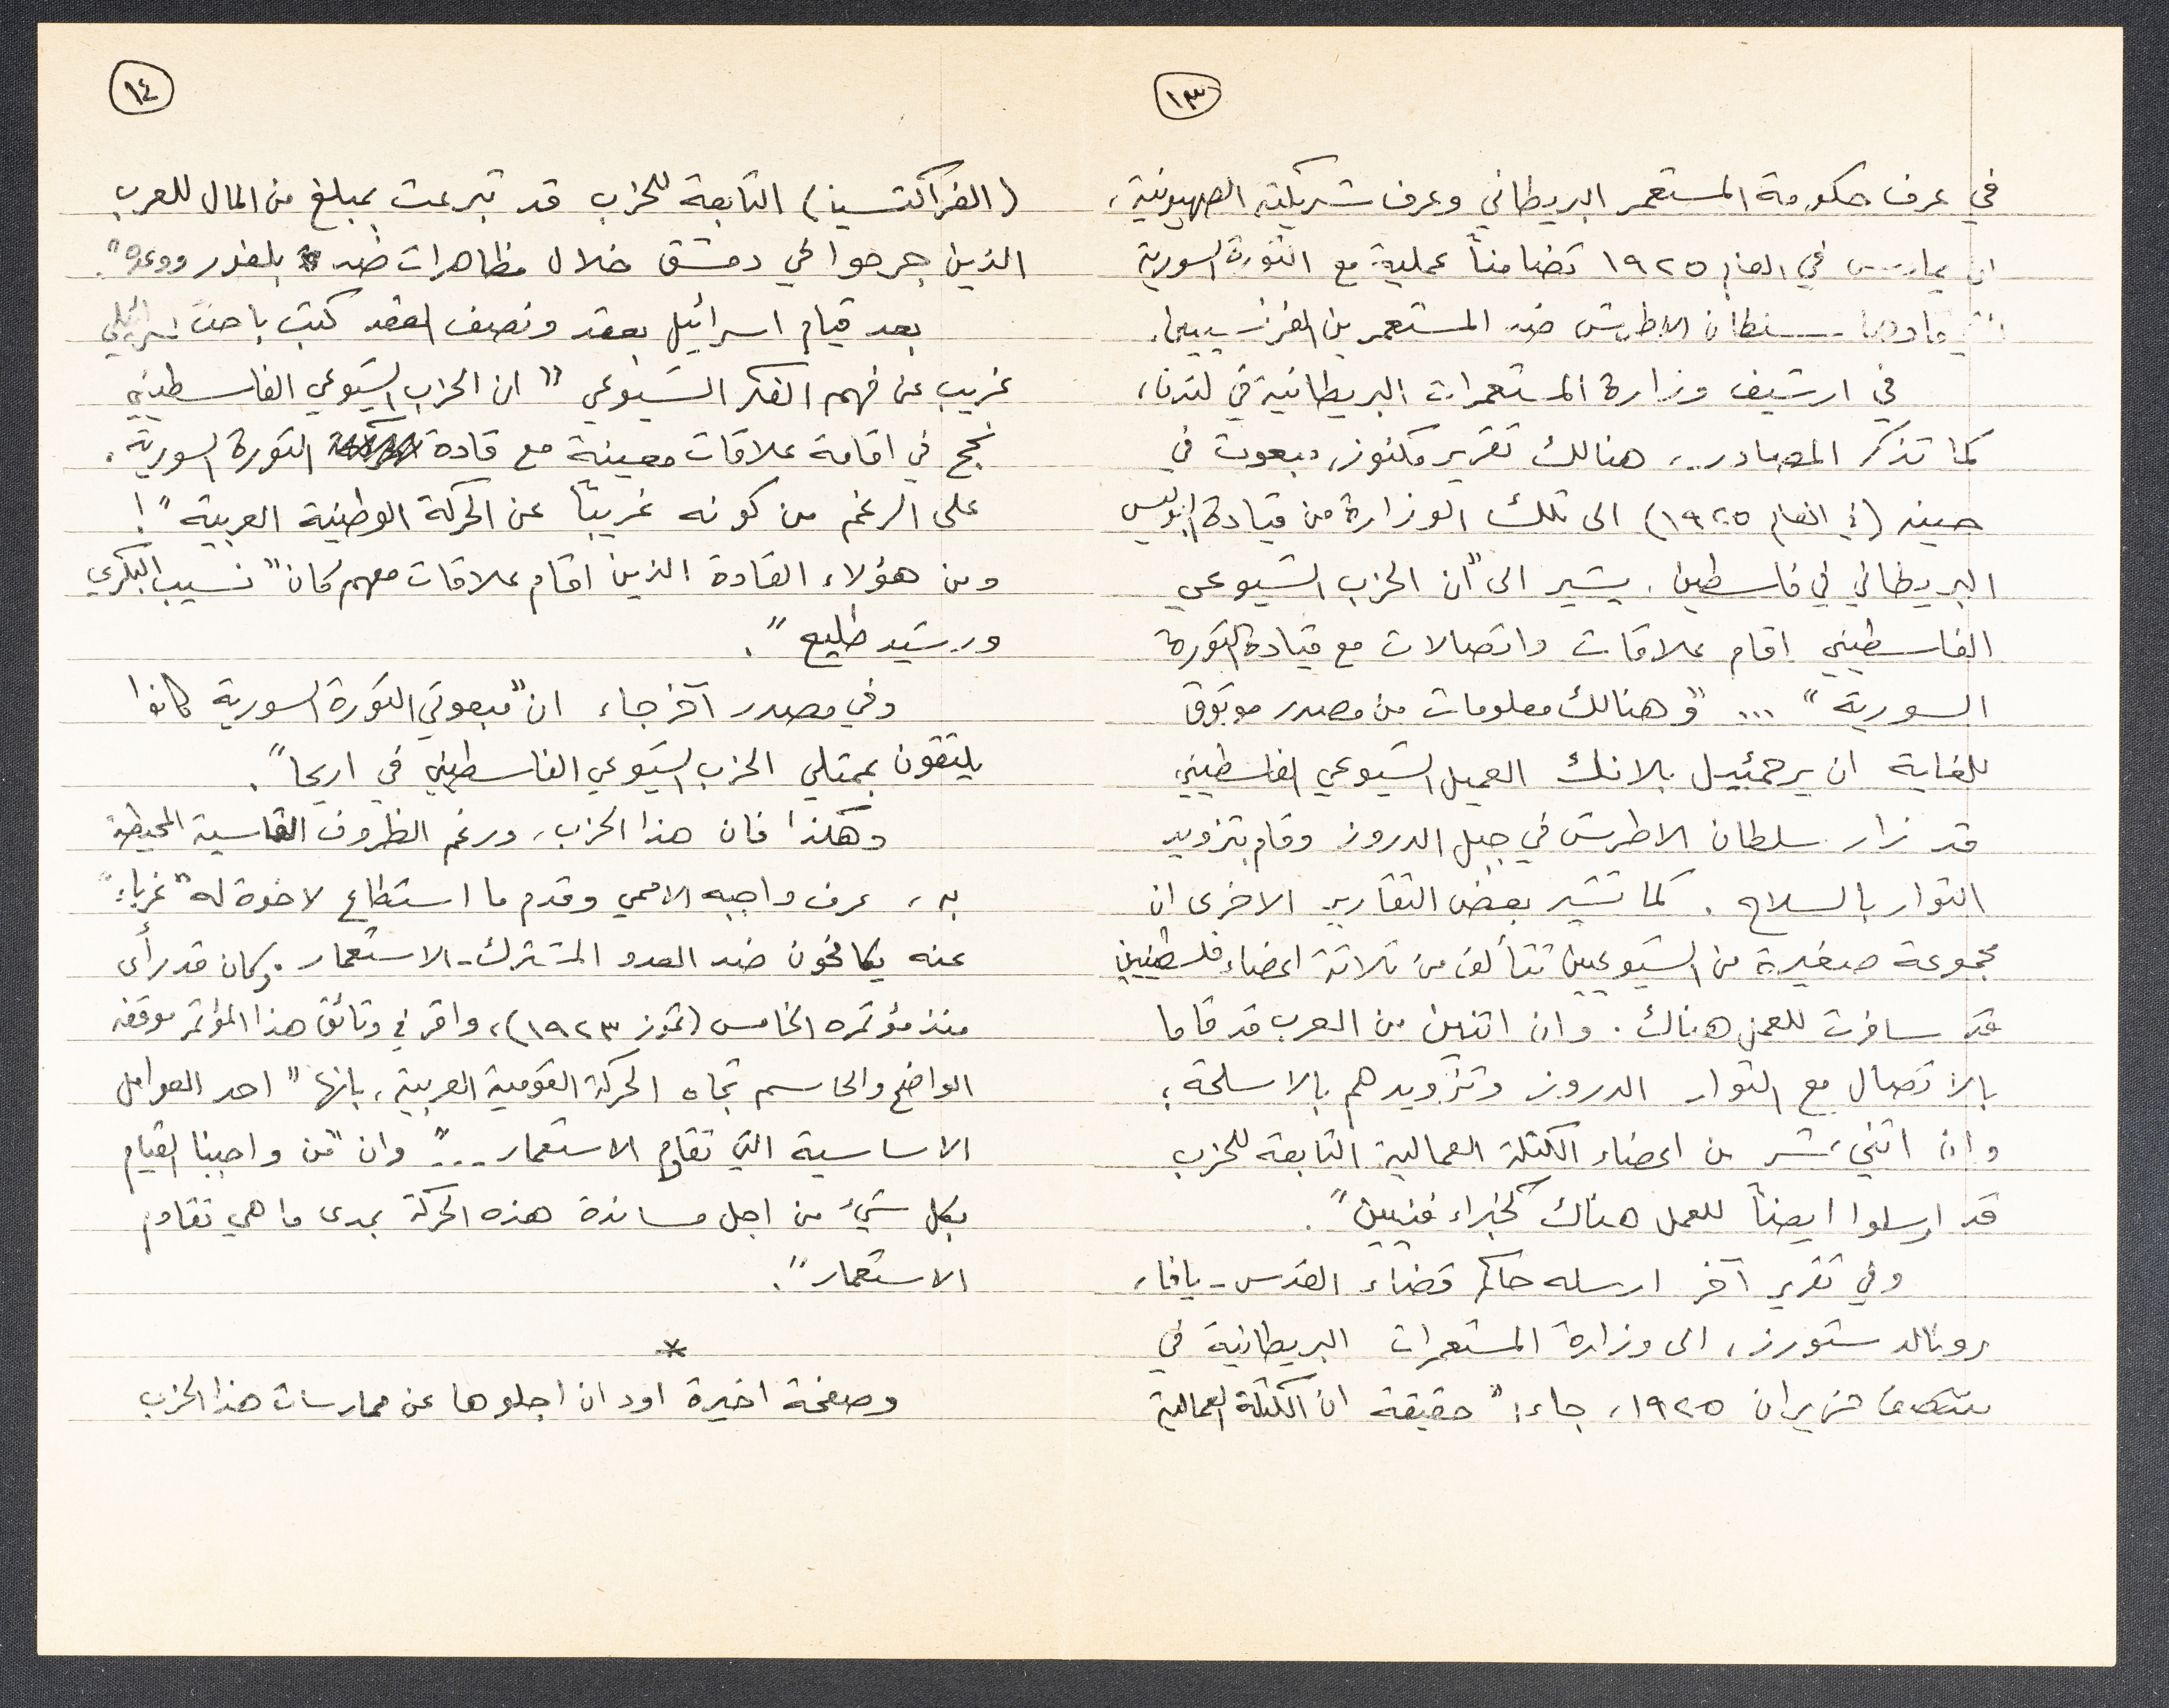 ١٣
في عرف حكومة المستعمر البريطاني وعرف شريكته الصهيونية،
ان يمارس في العام ١٩٢٥ تضامناً عملية مع الثورة السورية
التي قادها سلطان الاطرش ضد المستعمرين الفرنسيين.
في ارشيف وزارة المستعمرات البريطانية في لندن،
كما تذكر المصادر، هنالك تقرير مكنوز، مبعوث في
حينه (في العام ١٩٢٥) الى تلك الوزارة من قيادة البوليس
البريطاني في فلسطين، يشير الى "ان الحزب الشيوعي
الفلسطيني اقام علاقات واتصالات مع قيادة الثورة
السورية" ... "وهنالك معلومات من مصدر موثوق
للغاية ان يرحمئيل بلانك العميل الشيوعي الفلسطيني
قد زار سلطان الاطرش في جبل الدروز وقام بتزويد
الثوار بالسلاح. كما تشير بعض التقارير الاخرى ان
مجموعة صغيرة من الشيوعيين تتألف من ثلاثة اعضاء فلسطينيين
قد سافرت للعمل هناك. وان اثنين من العرب قد قاما
بالاتصال مع الثوار الدروز وتزويدهم بالاسلحة؛
وان اثني عشر من اعضاء الكتلة العمالية التابعة للحزب
قد ارسلوا ايضاً للعمل هناك كخبراء فنيين".
وفي تقرير آخر ارسله حاكم قضاء القدس-يافا،
رونالد ستورز، الى وزارة المستعمرات البريطانية في
منتصف حزيران ١٩٢٥، جاء: "حقيقة ان الكتلة العمالية
١٤
(الفراكتسيا) التابعة للحزب قد تبرعت بمبلغ من المال للعرب
الذين جرحوا في دمشق خلال مظاهرات ضد بلفور ووعده".
بعد قيام اسرائيل بعقد ونصف العقد كتب باحث اسرائيلي
غريب عن فهم الفكر الشيوعي "ان الحزب الشيوعي الفلسطيني
نجح في اقامة علاقات معينة مع قادة الثورة السورية،
على الرغم من كونه غريباً عن الحركة الوطنية العربية"!
ومن هؤلاء القادة الذين اقام علاقات معهم كان "نسيب البكري
ورشيد طليع".
وفي مصدر آخر جاء ان "مبعوثي الثورة السورية كانوا
يلتقون بممثلي الحزب الشيوعي الفلسطيني في اريحا".
وهكذا فان هذا الحزب، ورغم الظروف القاسية المحيطة
به، عرف واجبه الاممي وقدم ما استطاع لاخوة له "غرباء"
عنه يكافحون ضد العدو المشترك-الاستعمار. وكان قد رأى
منذ مؤتمره الخامس (تموز ١٩٢٣)، واقر في وثائق هذا المؤتمر موقفه
الواضح والحاسم تجاه الحركة القومية العربية، بانها "احد العوامل
الاساسية التي تقاوم الاستعمار..." وان "من واجبنا القيام
بكل شيء من اجل مساندة هذه الحركة بمدى ما هي تقاوم
الاستعمار".
*
وصفحة اخيرة اود ان اجلوها عن ممارسات هذا الحزب